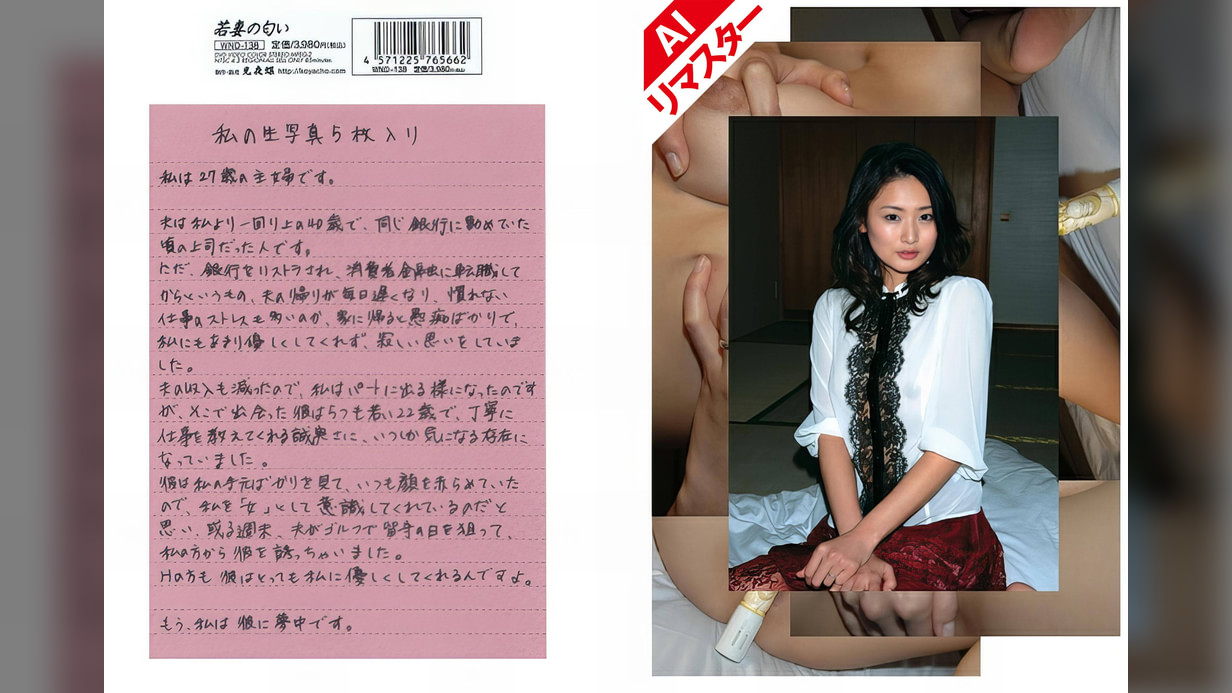 若妻の匂い
WND-138 定価/3,980円(税込)
http://kayacho.com
4 571225 765662
WND-138 定価/3,980円(税込)
私の生写真5枚入り
私は27歳の主婦です。
夫は私より一回り上の40歳で、同じ銀行に勤めていた
頃の上司だった人です。
ただ、銀行をリストラされ、消費者金融に転職して
からというもの、夫の帰りが毎日遅くなり、慣れない
仕事のストレスも多いのか、家に帰ると愚痴ばかりで、
私にもあまり優しくしてくれず、寂しい思いをしていま
した。
夫の収入も減ったので、私はパートに出る様になったのです
が、そこで出会った彼は5つも若い22歳で、丁寧に
仕事を教えてくれる誠実さに、いつしか気になる存在に
なっていました。
彼は私の手元ばかりを見て、いつも顔を赤らめていた
ので、私を「女」として意識してくれているのだと
思い、或る週末、夫がゴルフで留守の日を狙って、
私の方から彼を誘っちゃいました。
Hの方も彼はとっても私に優しくしてくれるんですよ。
もう、私は彼に夢中です。
AI
リマスター